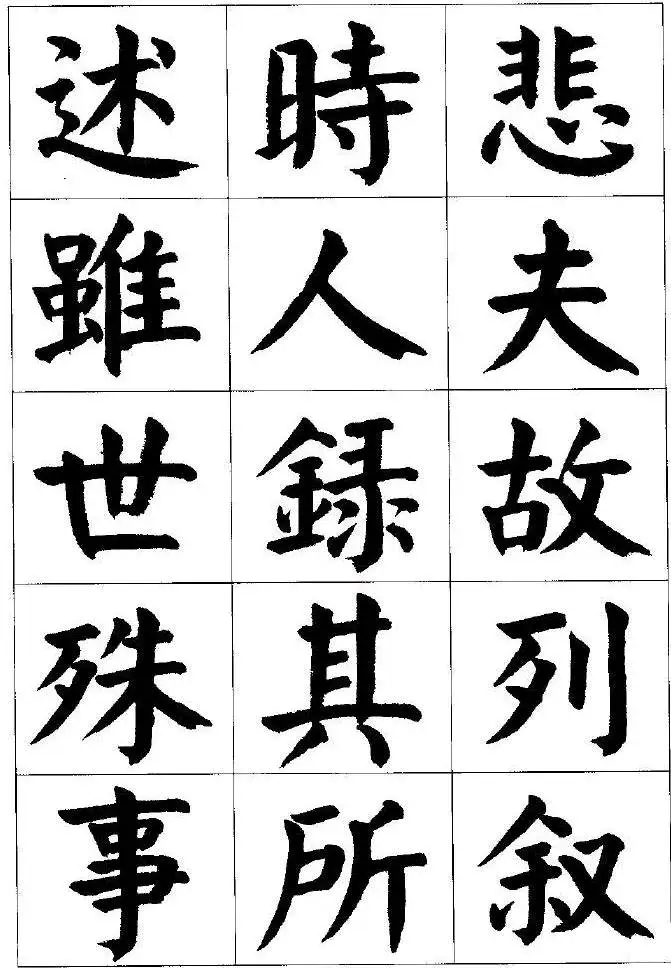 悲夫故列叙
時人録其所
述雖世殊事